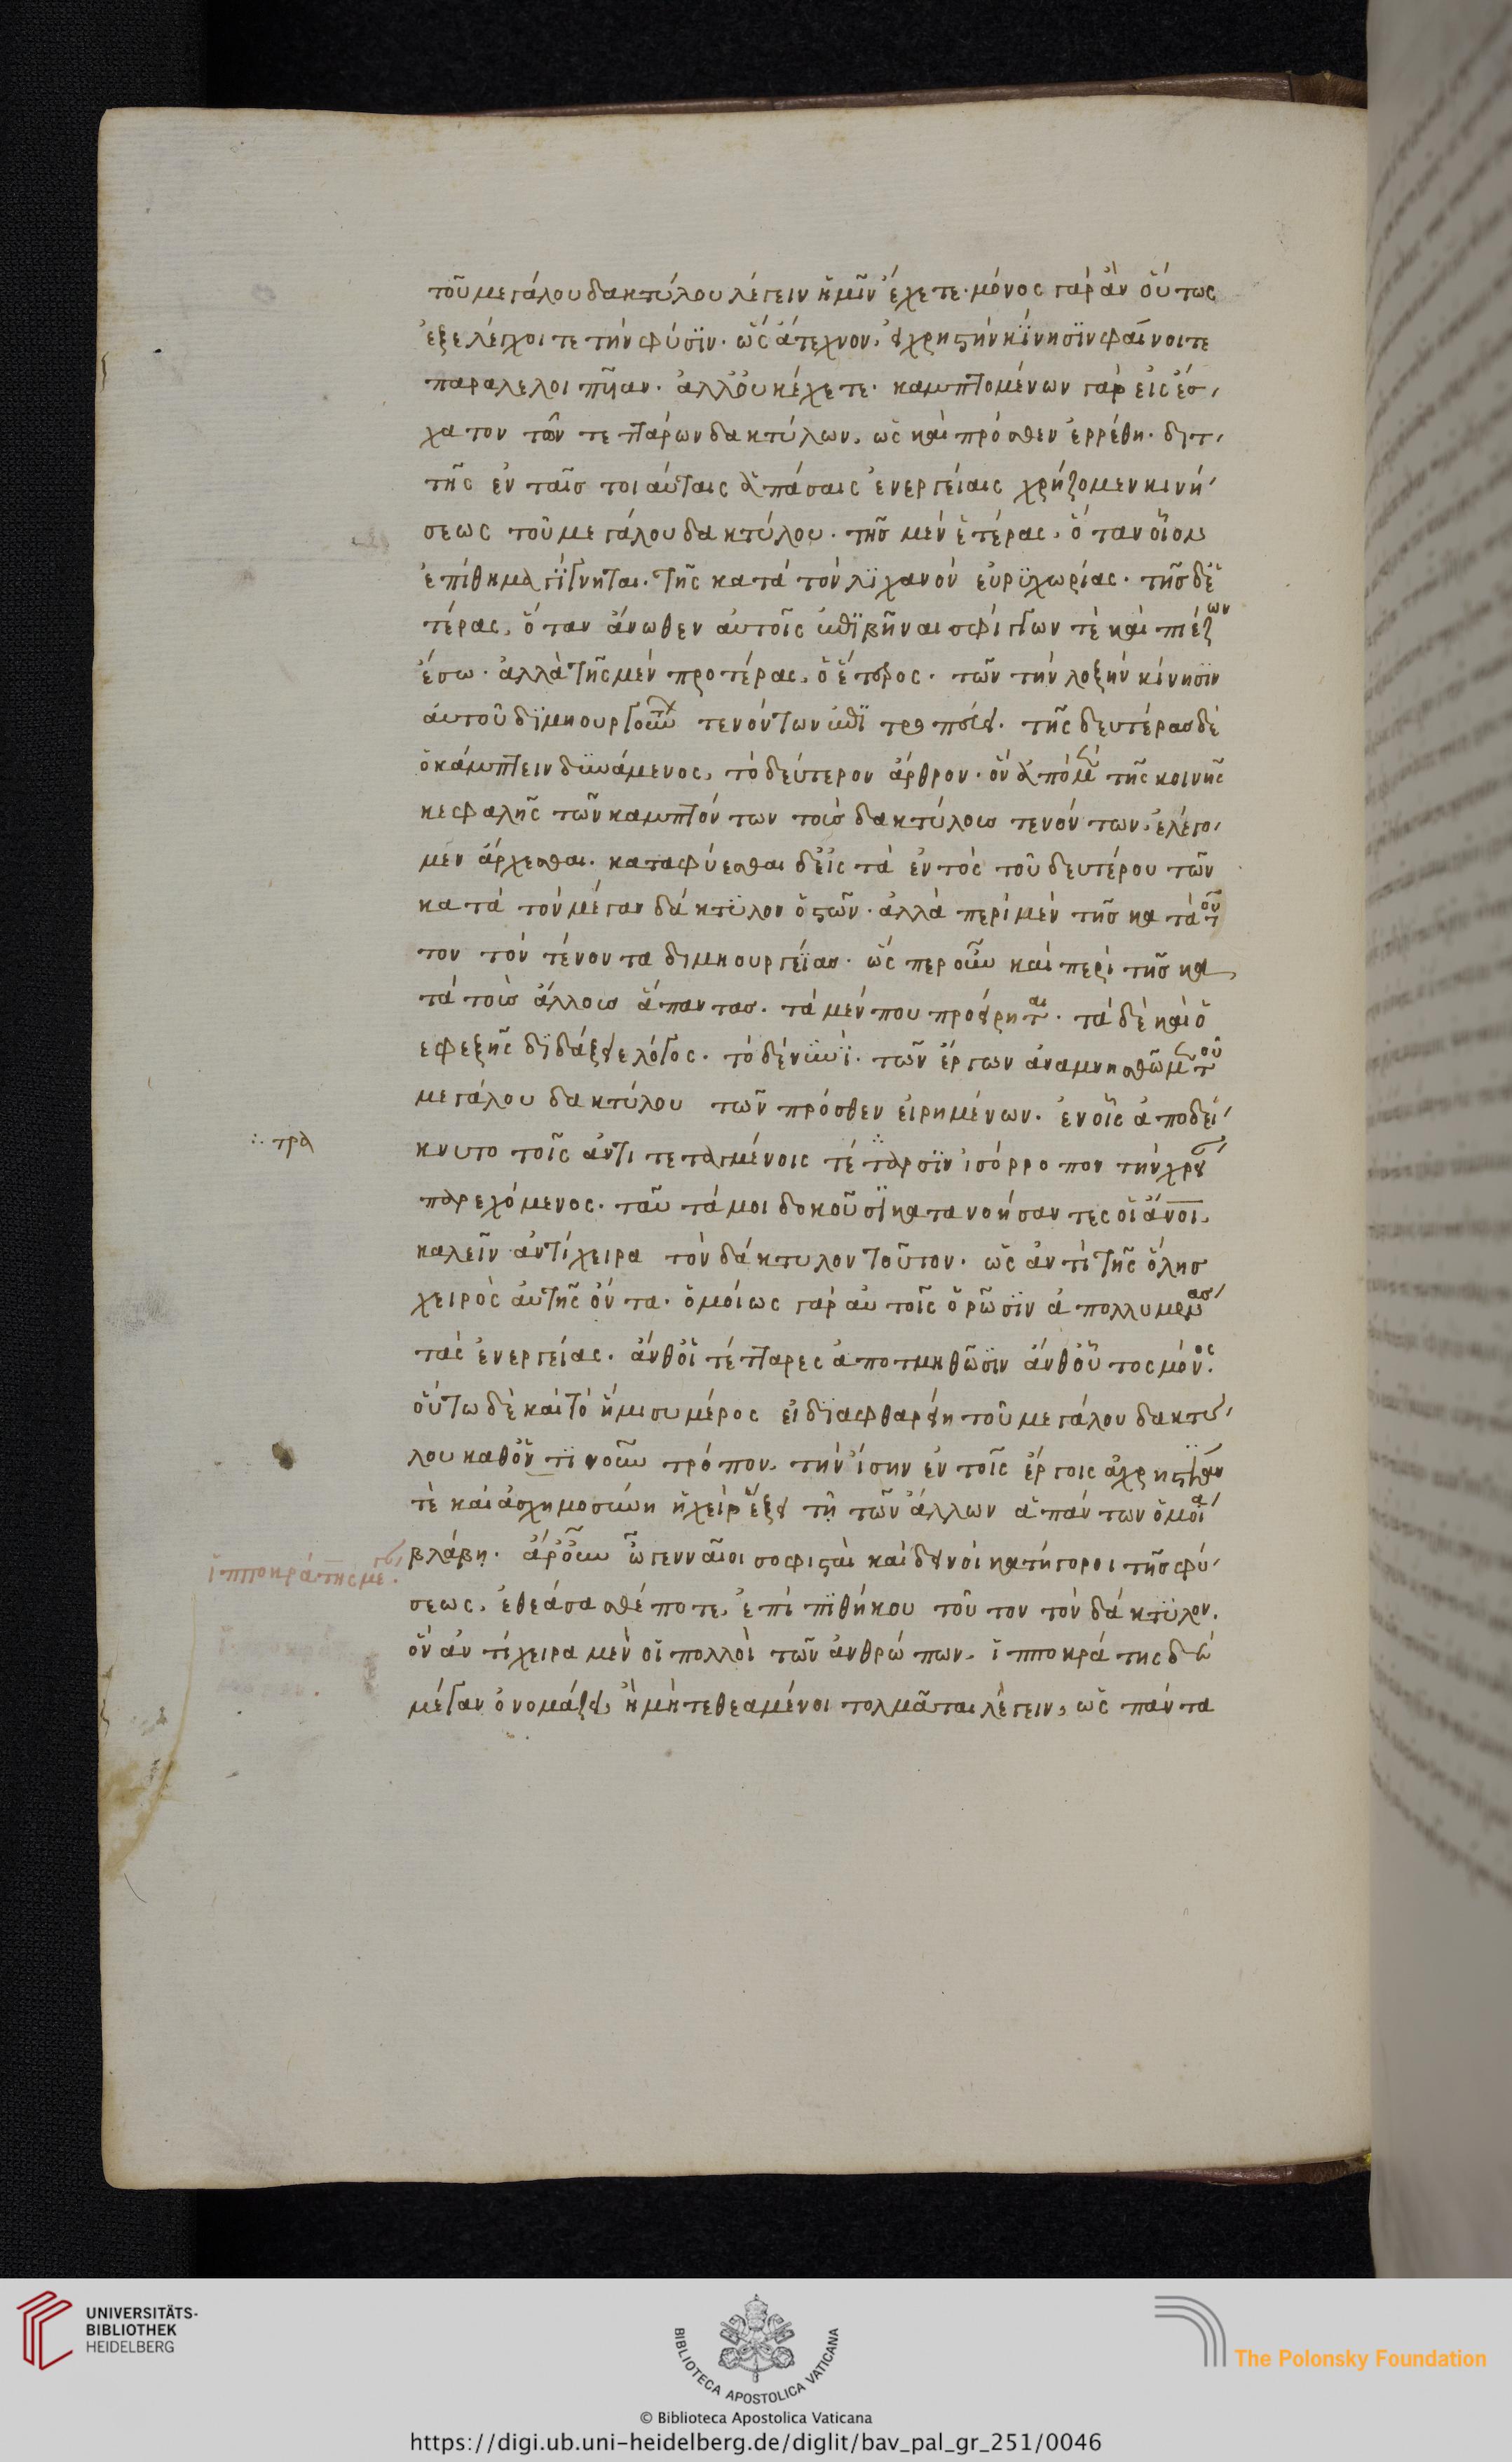 τοῦ μεγάλου δακτύλου λέγειν ἡμῖν ἔχετε· μόνος γὰρ ἂν οὕτως
ἐξελέγχοιτε τὴν φύσϊν· ὡς ἄτεχνον, εἰ χρηστὴν κΐνησϊν φαίνοιτε
παραλελοιπῆαν· ἀλλ' οὐκ ἔχετε· καμπτομένων γὰρ εἰς ἔσ,
χατον τῶν τεττάρων δακτύλων, ὡς καὶ πρόσθεν ἐρρέθη· διτ,
τῆς ἐν ταῖς τοιαύταις ἁπάσαις ἐνεργείαις χρήζομεν κινή,
σεως τοῦ μεγάλου δακτύλου· τῆς μὲν ἑτέρας, ὅταν οἷον
ἐπίθημα γΐγνηται τῆς κατὰ τὸν λϊχανὸν εὐρϋχωρίας· τῆς δὲ
τέρας, ὅταν ἄνωθεν αὐτοῖς ἐπϊβῆναι σφίγγων τὲ καὶ πιέζων
ἔσω· ἀλλὰ τῆς μὲν προτέρας, ὁ ἕτερος· τῶν τὴν λοξὴν κίνησϊν
αὐτοῦ δϊμηουργούντων τενόντων ἐπϊτροπεύει· τῆς δευτέρας δὲ
ὁ κάμπτειν δϋνάμενος, τὸ δεύτερον ἄρθρον· ὃν ἀπὸ μὲν τῆς κοινῆς
κεφαλῆς τῶν καμπτόντων τοὺς δακτύλους τενόντων, ἐλέγο,
μεν ἄρχεσθαι· καταφύεσθαι δ' εἰς τὰ ἐντὸς τοῦ δευτέρου τῶν
κατὰ τὸν μέγαν δάκτϋλον ὀστῶν· ἀλλὰ περὶ μὲν τῆς κατὰ τοῦ
τον τὸν τένοντα διμηουργεΐας· ὥς περ οὖν καὶ περὶ τῆς κα,
τὰ τοὺς ἄλλους ἅπαντας· τὰ μέν που προείρηται· τὰ δὲ καὶ ὁ
εφεξῆς δϊδάξει λόγος· τὸ δὲ νϋνΐ· τῶν ἔργων ἀναμνησθῶμεν τοῦ
μεγάλου δακτύλου τῶν πρόσθεν εἰρημένων· ἐν οἷς ἀποδεί,
κνυτο τοῖς ἀντιτεταγμένοις τέταρσϊν ἰσόρροπον τὴν χρείαν
παρεχόμενος· ταῦτά μοι δοκοῦσϊ κατανοήσαντες οἱ ἄνοι,
καλεῖν ἀντίχειρα τὸν δάκτυλον τοῦτον· ὡς ἀντὶ τῆς ὅλης
χειρὸς αὐτῆς ὄντα· ὁμοίως γὰρ αὐτοῖς ὁρῶσϊν ἀπολλυμένας
τὰς ἐνεργείας· ἄν θ' οἱ τέτταρες ἀποτμηθῶσϊν ἄν θ' οὗτος μόνος·
οὕτω δὲ καὶ τὸ ἥμισυ μέρος εἰ δϊαφθαρείη τοῦ μεγάλου δακτύ,
λου καθ' ὅν τϊν' οὖν τρόπον, τὴν ἴσην ἐν τοῖς ἔργοις ἀχρηστΐαν
τὲ καὶ ἀσχημοσύνη ἡ χεὶρ ἕξει τῇ τῶν ἄλλων ἁπάντων ὁμοία
βλάβη· ἆρ' οὖν ὦ γενναῖοι σοφισταὶ καὶ δεινοὶ κατήγοροι τῆς φύ,
σεως, ἐθεάσασθέ ποτε, ἐπὶ πϊθήκου τοῦτον τὸν δάκτϋλον,
ὃν ἀντίχειρα μὲν οἱ πολλοὶ τῶν ἀνθρώπων, ἱπποκράτης δὲ
μέγαν ὀνομάζει, ἢ μὴ τεθεαμένοι τολμᾶται λέγειν, ὡς πάντα
∴ τρα
ἱπποκράτης με.
UNIVERSITÄTS-
BIBLIOTHEK
HEIDELBERG
BIBLIOTECA APOSTOLICA VATICANA
© Biblioteca Apostolica Vaticana
The Polonsky Foundation
https://digi.ub.uni-heidelberg.de/diglit/bav_pal_gr_251/0046